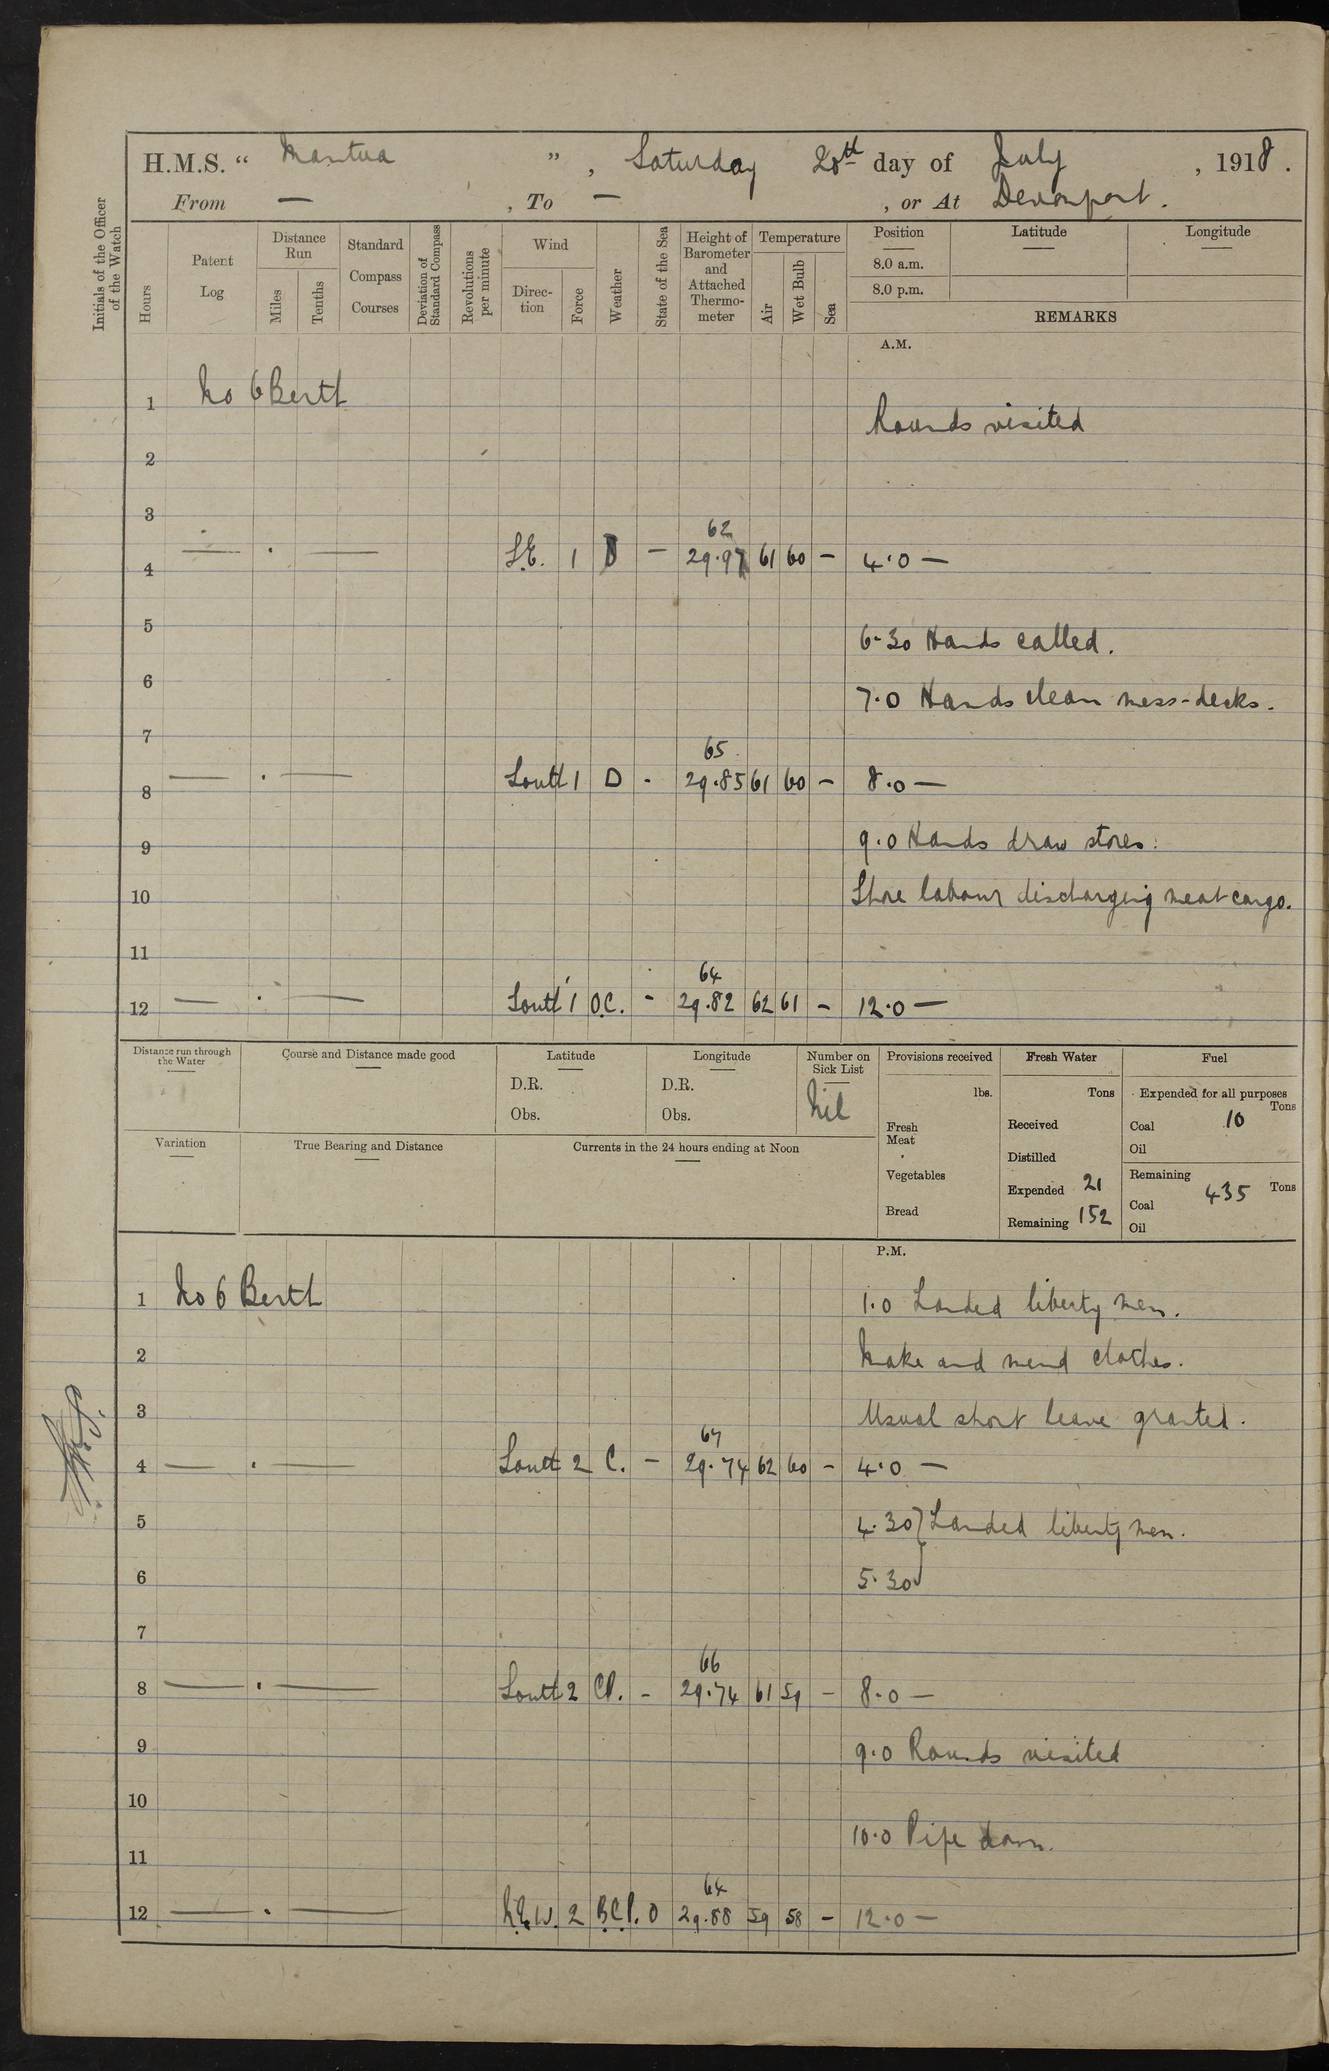 H.M.S. “ Mantua ” , Saturday 20th day of July , 1918 .
From — , To — , or At Devonport .
Initials of the Officer of the Watch
Hours
Patent Log
Distance Run
Miles
Tenths
Standard Compass Courses
Deviation of Standard Compass
Revolutions per minute
Wind
Direction
Force
Weather
State of the Sea
Height of Barometer and Attached Thermometer
Temperature
Air
Wet Bulb
Sea
Position
8.0 a.m.
8.0 p.m.
Latitude
Longitude
REMARKS
A.M.
1 No 6 Berth
Rounds visited
2
3
62
4 — . — S.E. 1 — 29.97 61 60 — 4.0 —
5
6.30 Hands called.
6
7.0 Hands clean mess-decks.
7
65
8 — . — South 1 D - 29.85 61 60 — 8.0 —
9 9.0 Hands draw stores:
10 Shore labour discharging meat cargo.
11
64
12 — . — South 1 O.C. - 29.82 62 61 — 12.0 —
Distance run through the Water
Course and Distance made good
Latitude
D.R.
Obs.
Longitude
D.R.
Obs.
Number on Sick List
Nil
Provisions received
lbs.
Fresh Meat
Vegetables
Bread
Fresh Water
Tons
Received
Distilled
Expended 21
Remaining 152
Fuel
Expended for all purposes
Tons
Coal 10
Oil
Remaining
Tons
Coal 435
Oil
Variation
True Bearing and Distance
Currents in the 24 hours ending at Noon
P.M.
1 No 6 Berth 1.0 Landed liberty men.
2 Make and mend clothes.
3 Usual short leave granted.
67
4 — . — South 2 C. — 29.74 62 60 — 4.0 —
5 4.30 } Landed liberty men.
6 5.30
7
66
8 — . — South 2 CP. - 29.74 61 59 — 8.0 —
9 9.0 Rounds visited
10
10.0 Pipe down.
11
64
12 — . — 2 B.C.P. 0 29.88 59 58 — 12.0 —